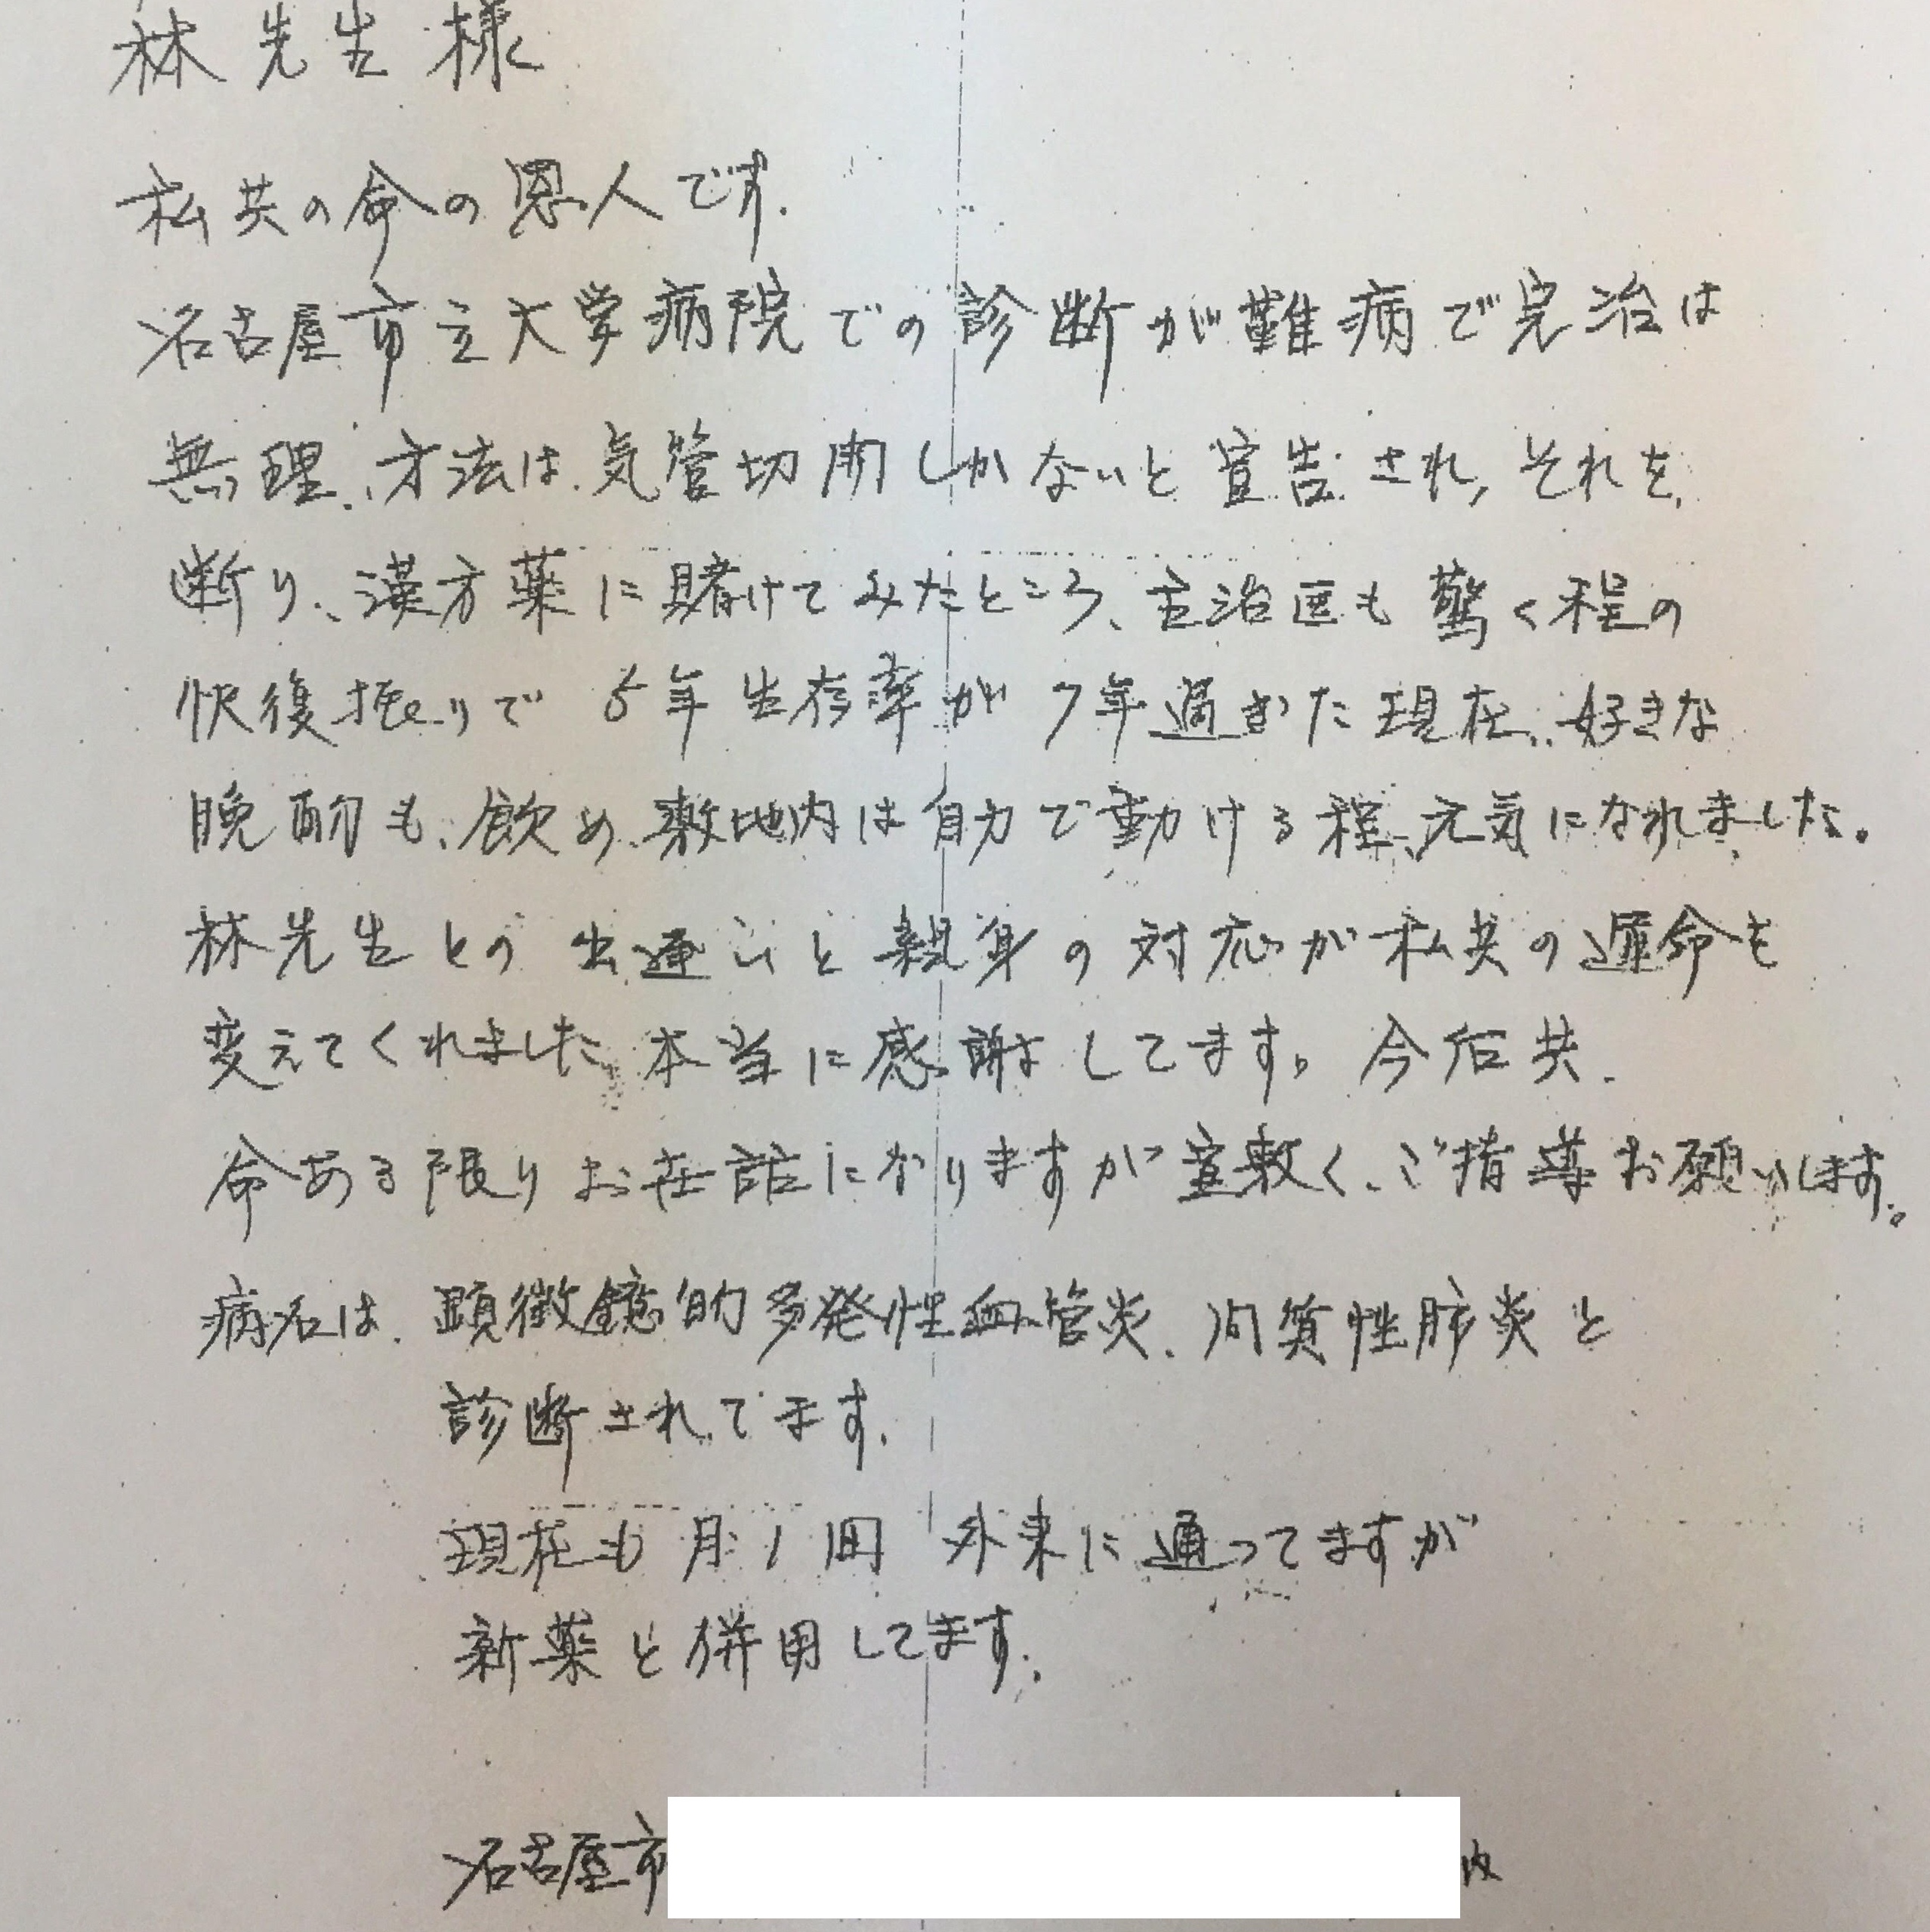 林先生様
私共の命の恩人です.
名古屋市立大学病院での診断が難病で完治は
無理、方法は気管切開しかないと宣告され,それを
断り、漢方薬に賭けてみたところ、主治医も驚く程の
快復振りで 5年生存率が 7年過ぎた現在、好きな
晩酌も、飲め、敷地内は自力で動ける程、元気になれました。
林先生との出逢いと親身の対応が私共の運命を
変えてくれました、本当に感謝してます。今后共、
命ある限りお世話になりますが宜敷く、ご指導お願いします。
病名は、顕微鏡的多発性血管炎、間質性肺炎と
診断されてます.
現在も 月1回 外来に通ってますが
新薬と併用してます.
名古屋市